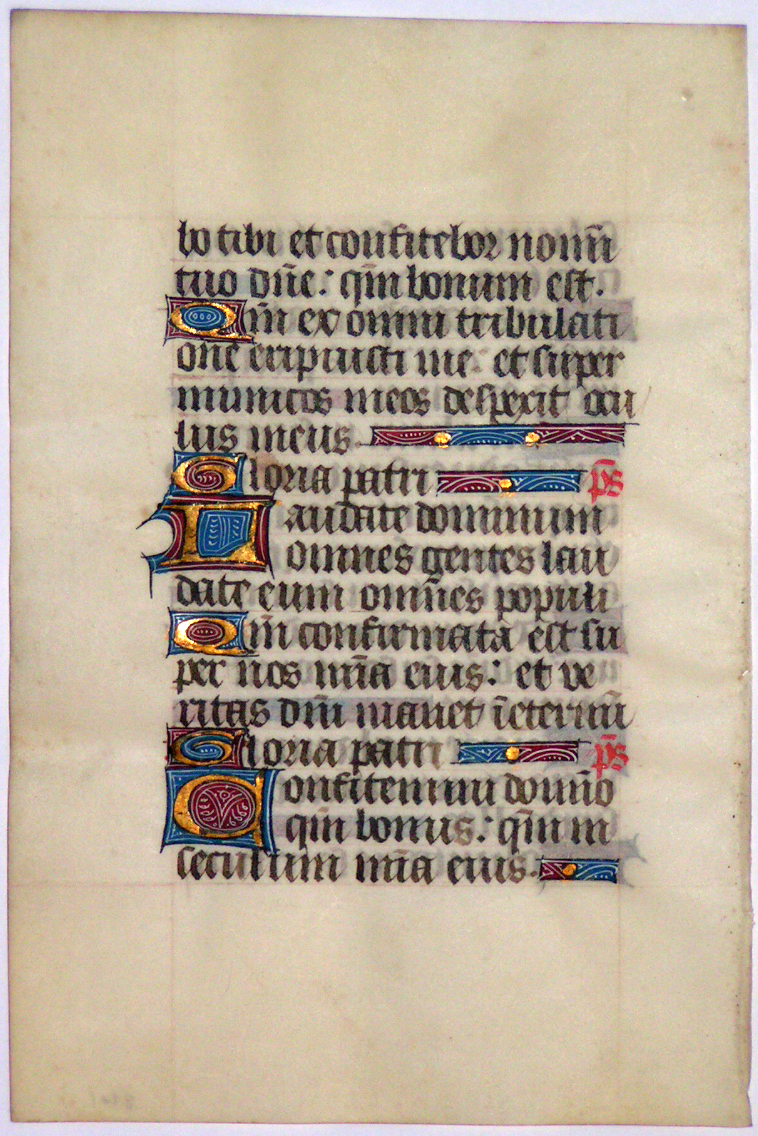 bo tibi et confitebor nomī
tuo dn̄e: qm̄ bonum est.
Qm̄ ex omni tribulati
one eripuisti me: et super
inimicos meos despexit ocu
lus meus.
Gloria patri ps̄
Laudate dominum
omnes gentes lau
date eum omn̄es populi
Qm̄ confirmata est su
per nos mīa eius: et ve
ritas dn̄i manet ī eternū
Gloria patri ps̄
Confitemini domīo
qm̄ bonus: qm̄ in
seculum mīa eius.